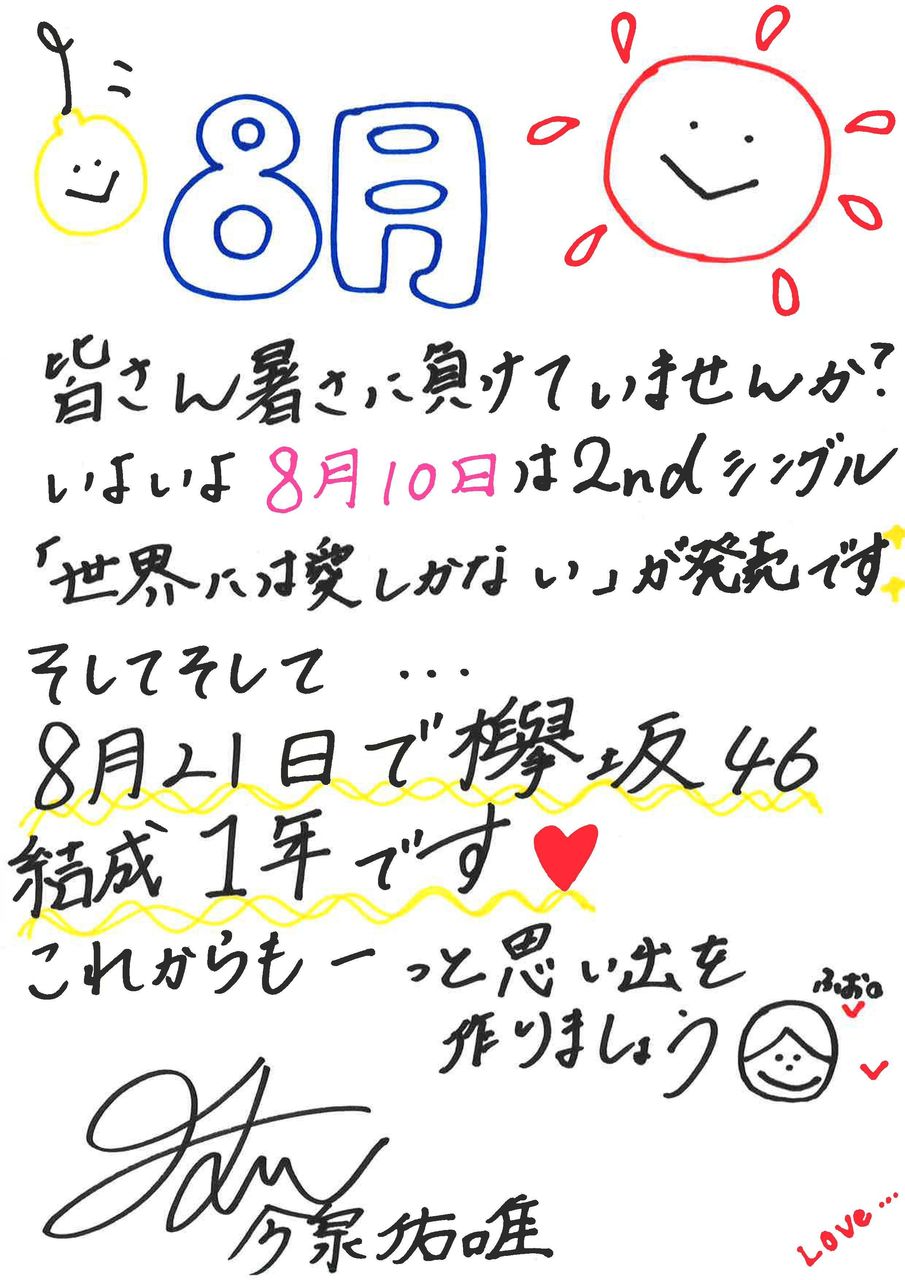 8月
皆さん暑さに負けていませんか?
いよいよ 8月10日は2ndシングル
「世界には愛しかない」が発売です
そしてそして ...
8月21日で欅坂46
結成1年です
これからもーっと思い出を
作りましょう
ふお。
今泉佑唯
LOVE...